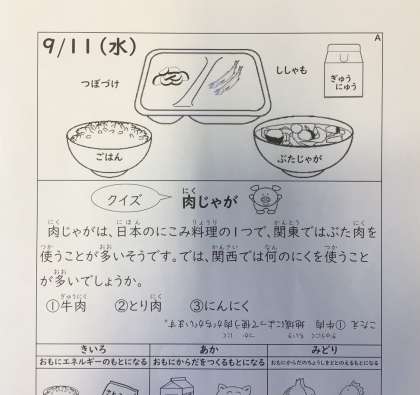 9/11(水)
A
つぼづけ
ししゃも
ぎゅう
にゅう
ごはん
ぶたじゃが
クイズ
肉じゃが
肉じゃがは、日本のにこみ料理の1つで、関東ではぶた肉を
使うことが多いそうです。では、関西では何のにくを使うこと
が多いでしょうか。
①牛肉 ②とり肉 ③にんにく
こたえ ①牛肉 地域によって使う肉がちがいます。
きいろ
あか
みどり
おもにエネルギーのもとになる
おもにからだをつくるもとになる
おもにからだのちょうしをととのえるもとになる